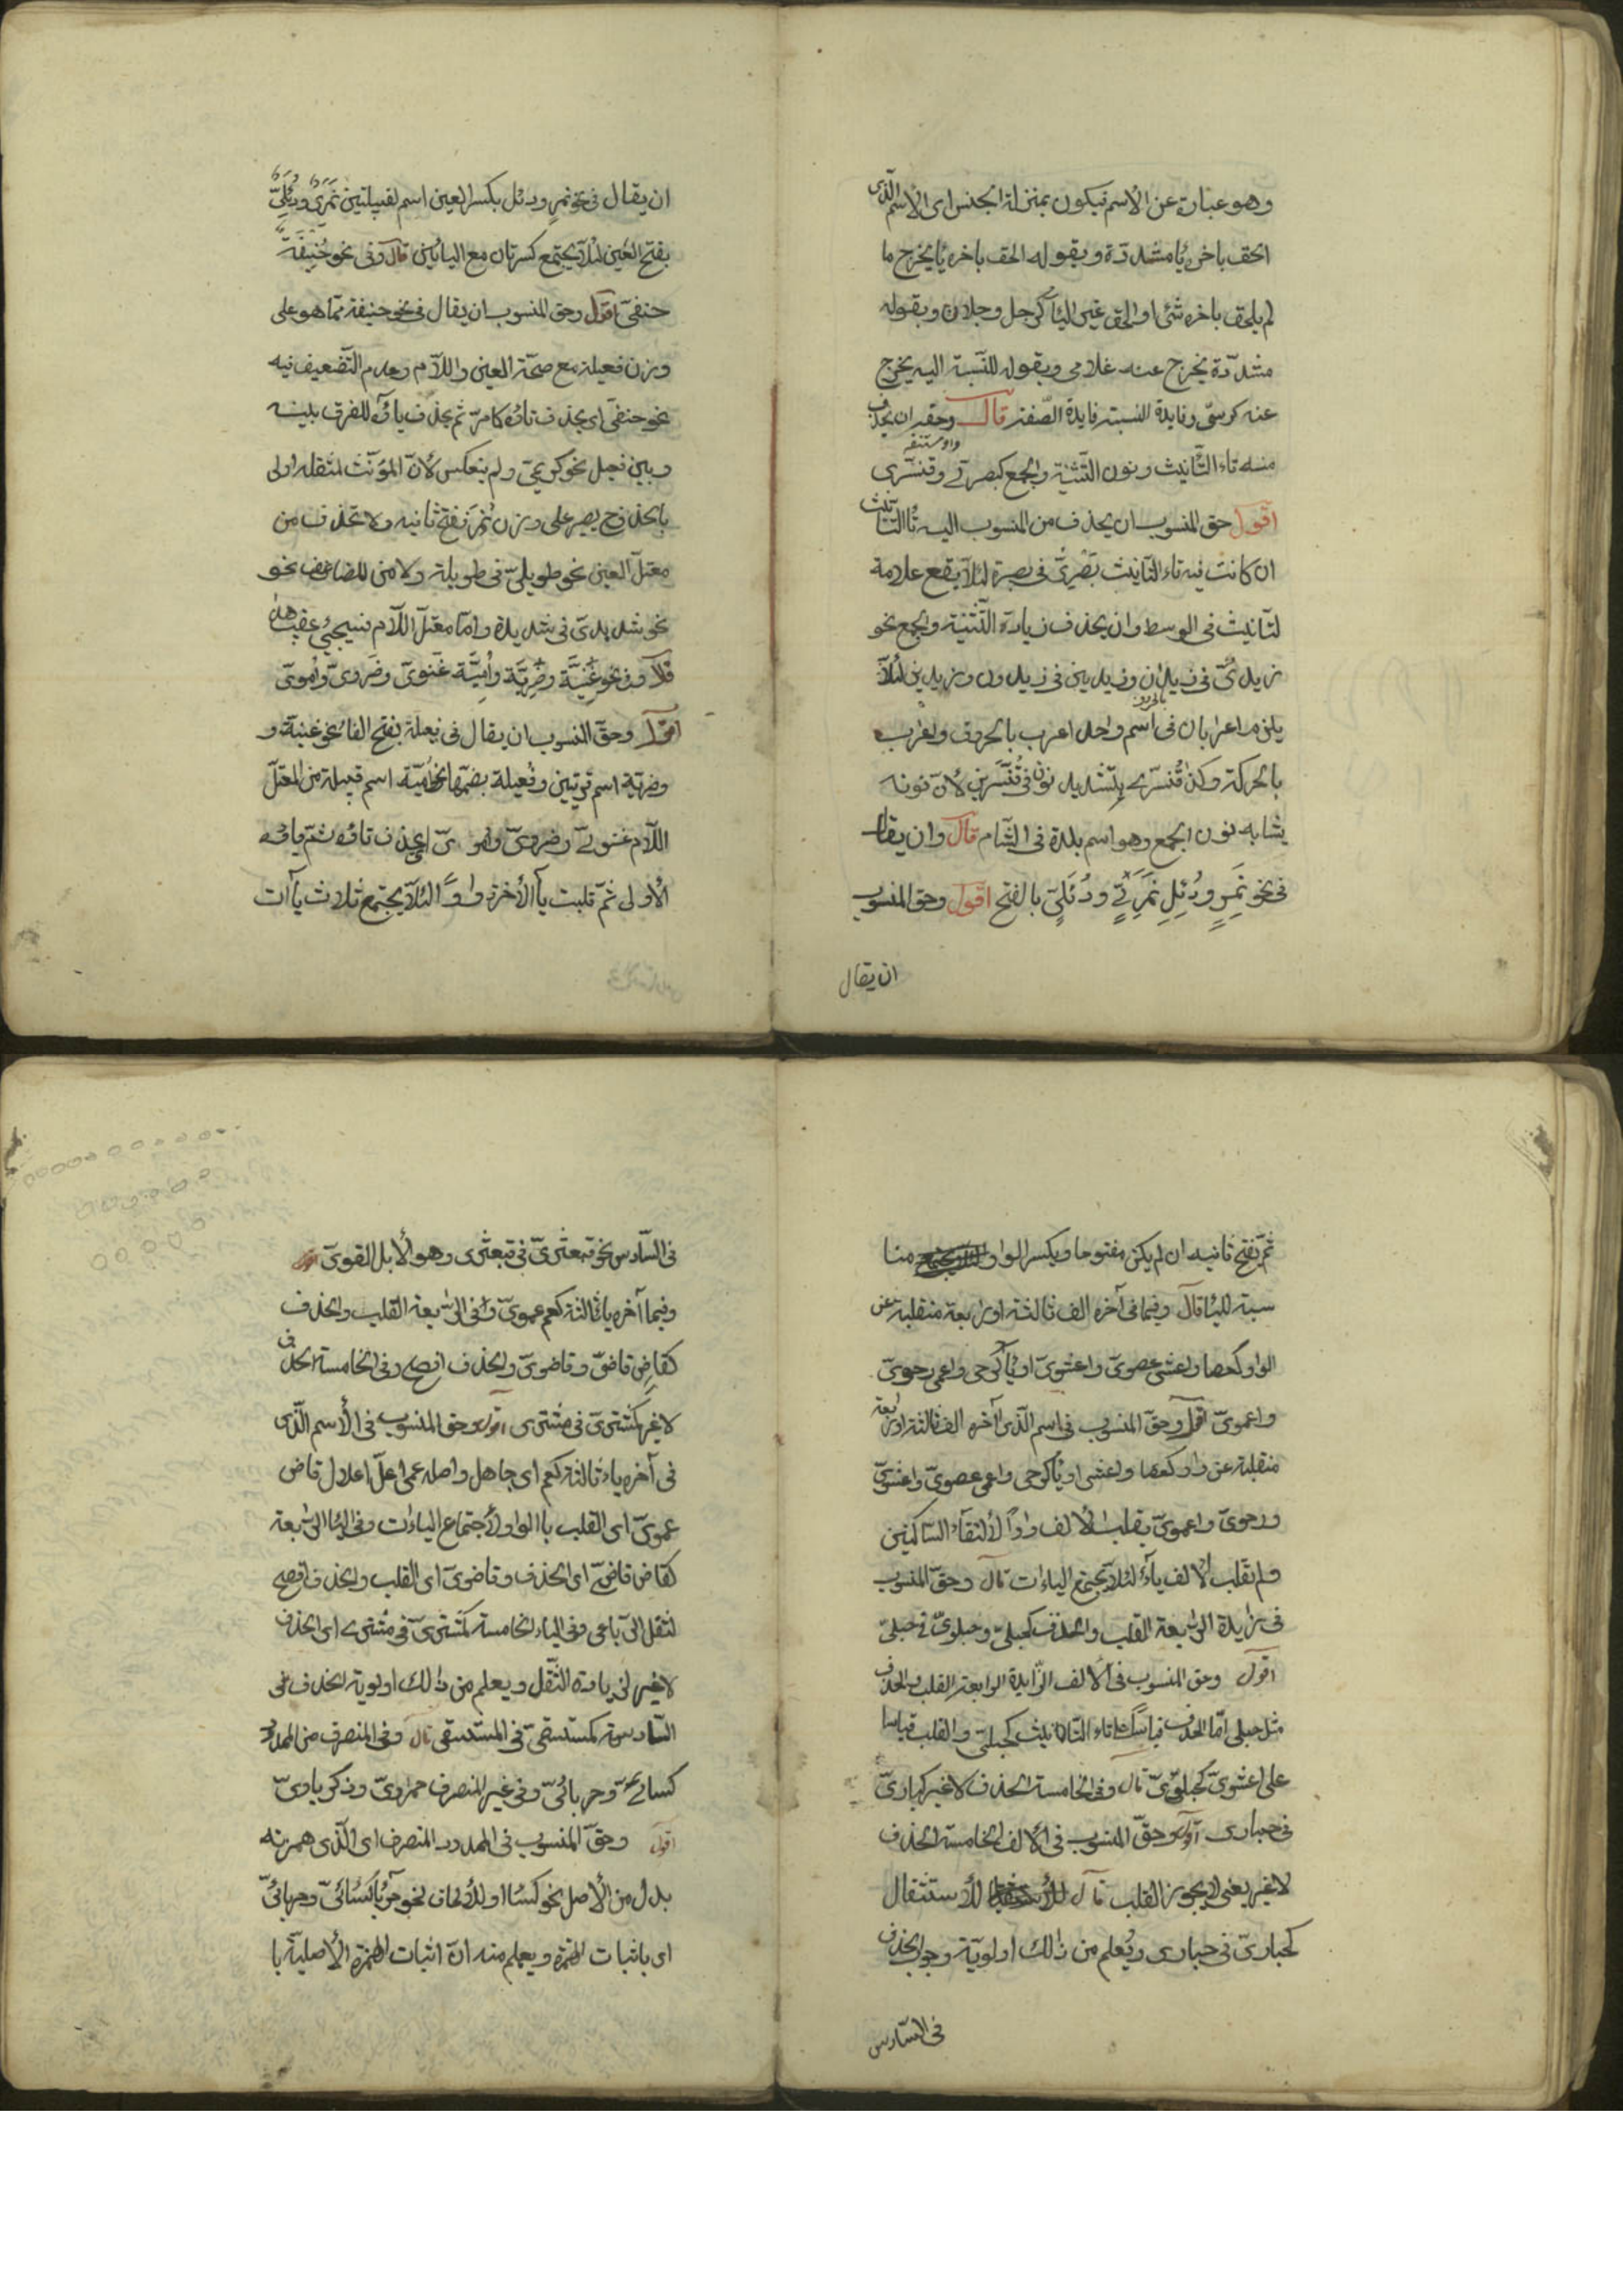 وهو عبارة عن الاسم فيكون بمنزلة الجنس اى الاسم الذى
الحق باخره يا مشددة وبقوله الحق باخره يا يخرج ما
لم يلحق باخره شئ او الحق غير اليآ كرجل وجلان وبقوله
مشدّدة يخرج عنه غلامى وبقوله للنّسبة اليه يخرج
عنه كرسىّ وفايدة النسبة فايدة الصّفة قال وحقه ان يحذف
منه تاء التّانيث ونون التّثنية والجمع كبصرىّ وقنسّرى
اقول حق المنسوب ان يحذف من المنسوب اليه تا التانيث
ان كانت فيه تاء التّانيث بَصْرىّ فى بصرة لئلّا يقع علامة
لتانيث فى الوسط وان يحذف زيادة التّثنية والجمع نحو
زيدىّ فى زيدان وزيدين فى زيدون وزيدين لئلّا
يلزم اعرابان فى اسم واحد اعرب بالحروف واعراب
بالحركة وكذا قنّسرى بتشديد نون فى قنّسرين لانّ نونه
يشابه نون الجمع وهو اسم بلدة فى الشّام قال وان يقال
فى نحو نَمِرٍ ودُئِلٍ نَمَرِىّ ودُئَلىّ بالفتح اقول وحق المنسوب
ان يقال
ان يقال فى نحو نمر ودئل بكسر العين اسم لقبيلتين نَمَرىّ ودُئَلِىّ
بفتح العين لئلّا يجتمع كسرتان مع اليائين قال وفى نحو حنيفة
حنفىّ اقول وحق المنسوب ان يقال فى نحو حنيفة ممّا هو على
وزن فعيلة مع صحّة العين واللّام وعدم التّضعيف فيه
نحو حنفىّ اى يحذف تاؤه كامرّ ثم يحذف ياؤه للفرق بينه
وبين فعيل نحو كريمىّ ولم ينعكس لانّ المؤنّث لثقله اولى
بالحذف ح يصير على وزن نَمِرَ نفتح ثانيه ولا تحذف من
معتلّ العين نحو طويلىّ فى طويلة ولا من المضاعف نحو
نحو شديدىّ فى شديدة وامّا معتلّ اللّام فسيجئ عقيب هذا
قال وفى نحو غَنِيَّة وضَرِيَّة واُمَيَّة غَنَوىّ وضَرَوىّ واُمَوىّ
اقول وحقّ المنسوب ان يقال فى فعيلة بفتح الفاء نحو غنية و
وضرية اسم قريتين وفُعيلة بضمّها نحو اُميّة اسم قبيلة من المعتلّ
اللّام غنوىّ وضروىّ واموىّ اى يحذف تاؤه ثمّ ياؤه
الاولى ثمّ قلبت يآ الاخرة واوًا لئلّا يجتمع ثلاث يآات
ثمّ نفتح ثانيه ان لم يكن مفتوحا ويكسر الواو منا
سبة لليا قال وفيما فى آخره الف ثالثة او رابعة منقلبة عن
الواو كعصا واعشى عصوىّ واعشوىّ او يآ كرحى واعمى رحوىّ
واعموىّ اقول وحقّ المنسوب فى اسم الّذى آخره الف ثالثة او رابعة
منقلبة عن واو كعصا واعشى او يآ كرحى واعمى عصوىّ واعشوىّ
ورحوىّ واعموىّ بقلب الالف واواً لالتقآء السّاكنين
ولم تقلب الالف يآءً لئلّا يجتمع الياءات قال وحقّ المنسوب
فى زايدة الرّابعة القلب والحذف كحبلىّ وحبلوىّ فى حبلىّ
اقول وحق المنسوب فى الالف الزّايدة الرابعة القلب والحذف
مثل حبلى امّا الحذف قياسًا على تاء التّانيث كحبلىّ والقلب قياسا
على اعشوىّ كحبلوىّ قال وفى الخامسة الحذف لاغير كحبارىّ
فى حبارى اقول وحقّ المنسوب فى الالف الخامسة الحذف
لاغير يعنى لا يجوز القلب قال للاستثقال
كحبارىّ فى حبارى ويُعلم من ذٰلك اولويّة وجوب الحذف
فى السّادس
فى السّادس نحو قبعثرىّ فى قبعثرى وهو الابل القوىّ
وفيما آخره يا ثالثة كعم عموىّ وفى الرّابعة القلب والحذف
كقاضٍ قاضىّ وقاضوىّ والحذف افصح وفى الخامسة الحذف
لا غير كمشترىّ فى مشترى اقول وحق المنسوب فى الاسم الّذى
فى آخره ياء ثالثة كعم اى جاهل واصله عمى اعلّ اعلال قاض
عموىّ اى القلب بالواو لاجتماع الياءات وفى اليا الرّابعة
كقاض قاضىّ اى الحذف وقاضوىّ اى القلب والحذف افصح
لثقل الرّباعى وفى الياء الخامسة كمشترىّ فى مشترى اى الحذف
لاغير لزيادة الثّقل ويعلم من ذٰلك اولوية الحذف فى
السّادسة كمستسقىّ فى المستسقى قال وفى المنصرف من الممدود
كسائىّ وحربائىّ وفى غير المنصرف حمراوىّ وزكرياوىّ
اقول وحقّ المنسوب فى الممدود المنصرف اى الّذى همزته
بدل من الاصل نحو كسا او للالحاق نحو حربا كسائىّ وحربائىّ
اى باثبات الهمزة ويعلم منه انّ اثبات الهمزة الاصليّة با